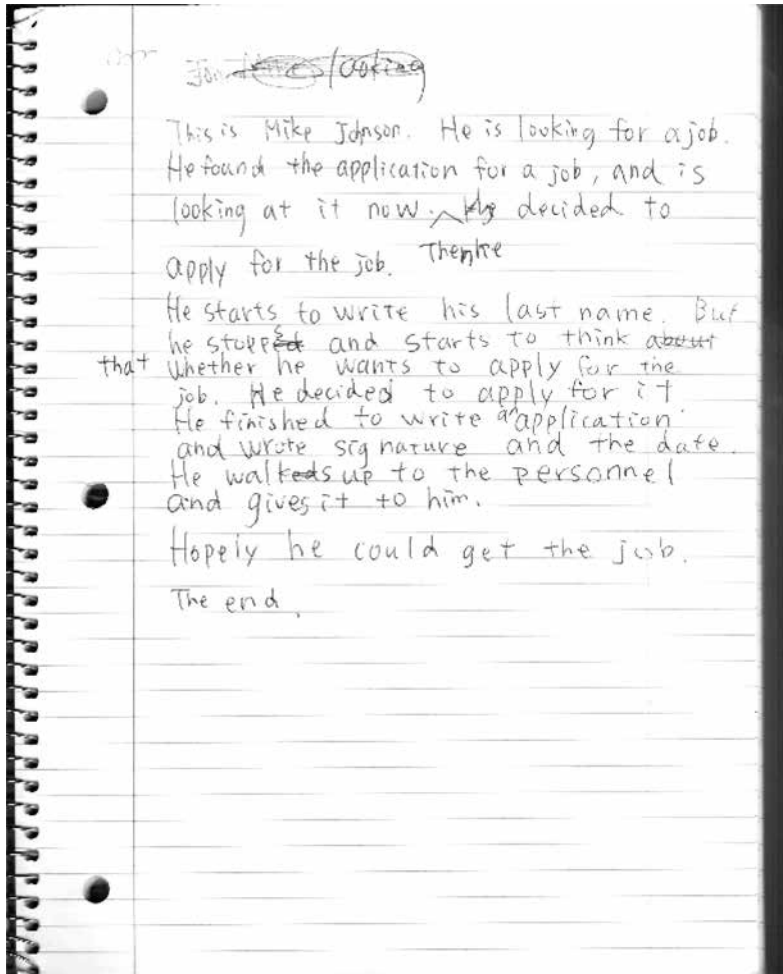 looking
This is Mike Johnson. He is looking for a job.
He found the application for a job, and is
looking at it now. He decided to
apply for the job. Then he
He starts to write his last name. But
he stopped and starts to think about
that whether he wants to apply for the
job. He decided to apply for it
He finished to write an application
and wrote signature and the date.
He walkeds up to the personnel
and gives it to him.
Hopely he could get the job.
The end.